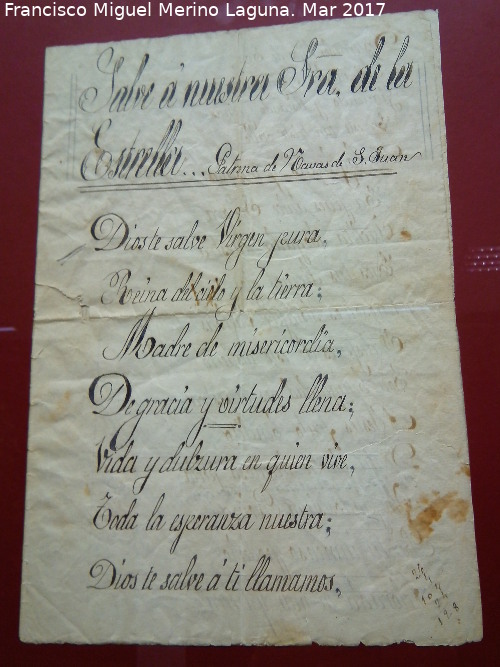 Francisco Miguel Merino Laguna. Mar 2017
Salve á nuestra Sra. de la
Estrella... Patrona de Navas de S. Juan
Dios te salve Virgen pura,
Reina del cielo y la tierra;
Madre de misericordia,
De gracia y virtudes llena;
Vida y dulzura en quien vive,
Toda la esperanza nuestra;
Dios te salve á ti llamamos,